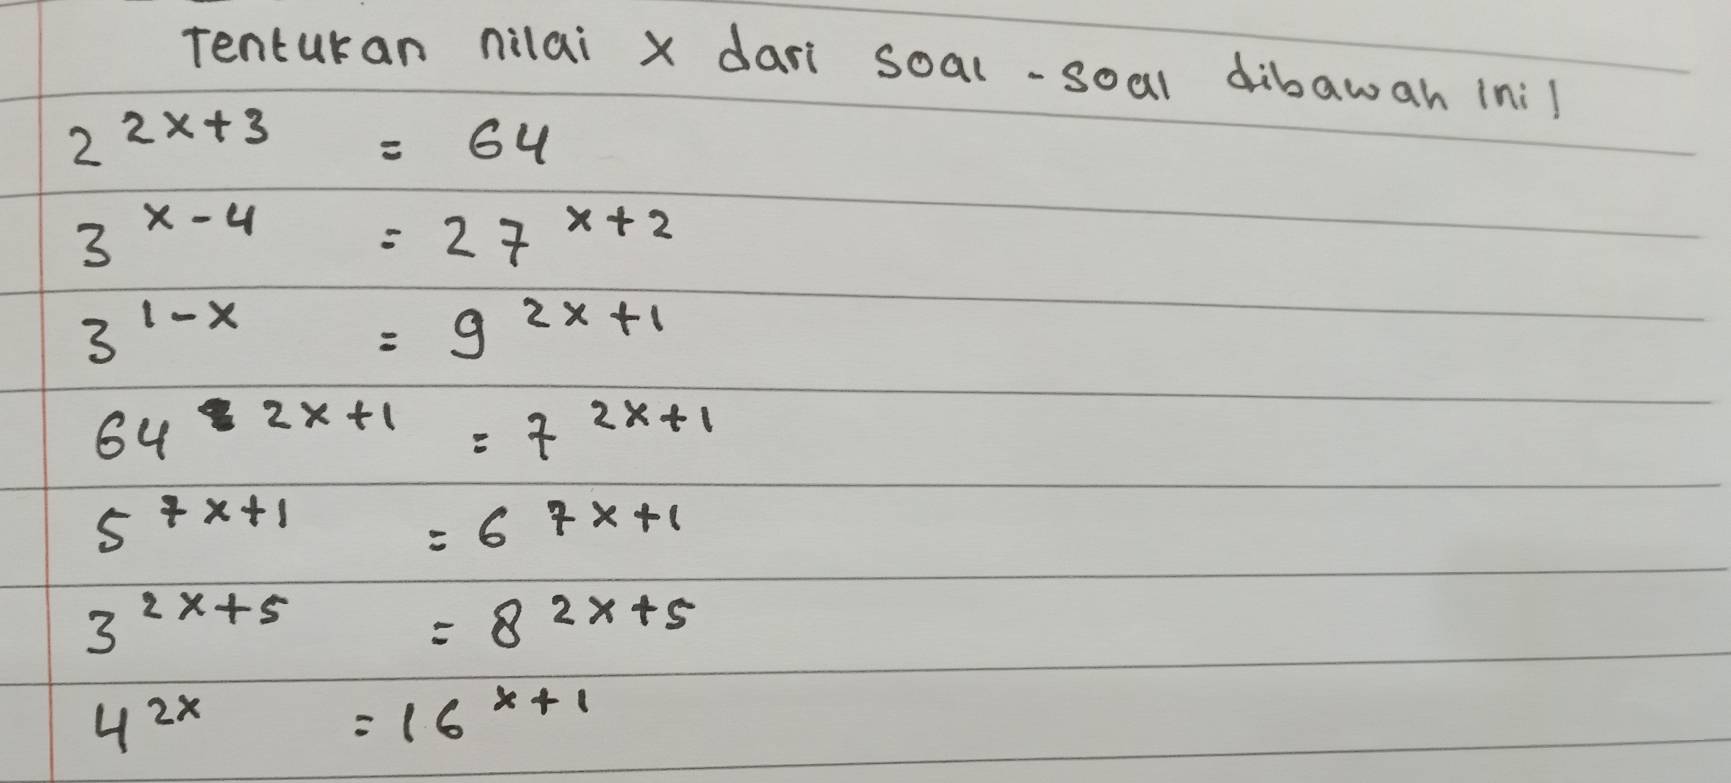 Tentukan nilai x dari soal - soal dibawah ini!
2^{2x+3} = 64
3^{x-4} = 27^{x+2}
3^{1-x} = 9^{2x+1}
64^{2x+1} = 7^{2x+1}
5^{7x+1} = 6^{7x+1}
3^{2x+5} = 8^{2x+5}
4^{2x} = 16^{x+1}